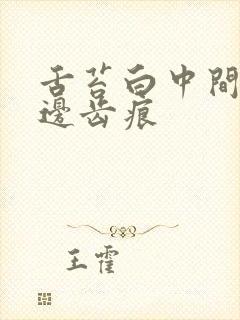 舌苔白中間
邊齿痕
王霍